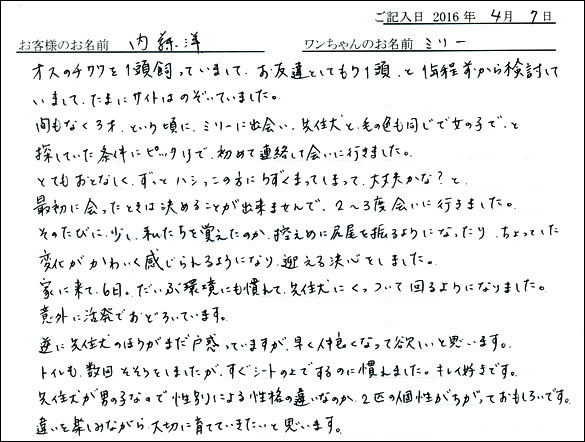 ご記入日 2016 年 4月 7日
お客様のお名前 内藤 洋 ワンちゃんのお名前 ミリー
オスのチワワを1頭飼っていまして、お友達としてもう1頭、と1年程前から検討して
いまして、たまにサイトはのぞいていました。
間もなく3才、という頃に、ミリーに出会い、先住犬と毛の色も同じで女の子で、と
探していた条件にピッタリで、初めて連絡して会いに行きました。
とてもおとなしく、ずっとハシっこの方にうずくまってしまって、大丈夫かな?と、
最初に会ったときは決めることが出来ませんで、2〜3度会いに行きました。
そのたびに、少し、私たちを覚えたのか、控えめに尻尾を振るようになったり、ちょっとした
変化がかわいく感じられるようになり、迎える決心をしました。
家に来て、6日。だいぶ環境にも慣れて、先住犬にくっついて回るようになりました。
意外に活発でおどろいています。
逆に先住犬のほうがまだ戸惑っていますが、早く仲良くなって欲しいと思います。
トイレも、数回そそうをしましたが、すぐシートの上でするのに慣れました。キレイ好きです。
先住犬が男の子なので性別による性格の違いなのか、2匹の個性がちがっておもしろいです。
違いを楽しみながら、大切に育てていきたいと思います。